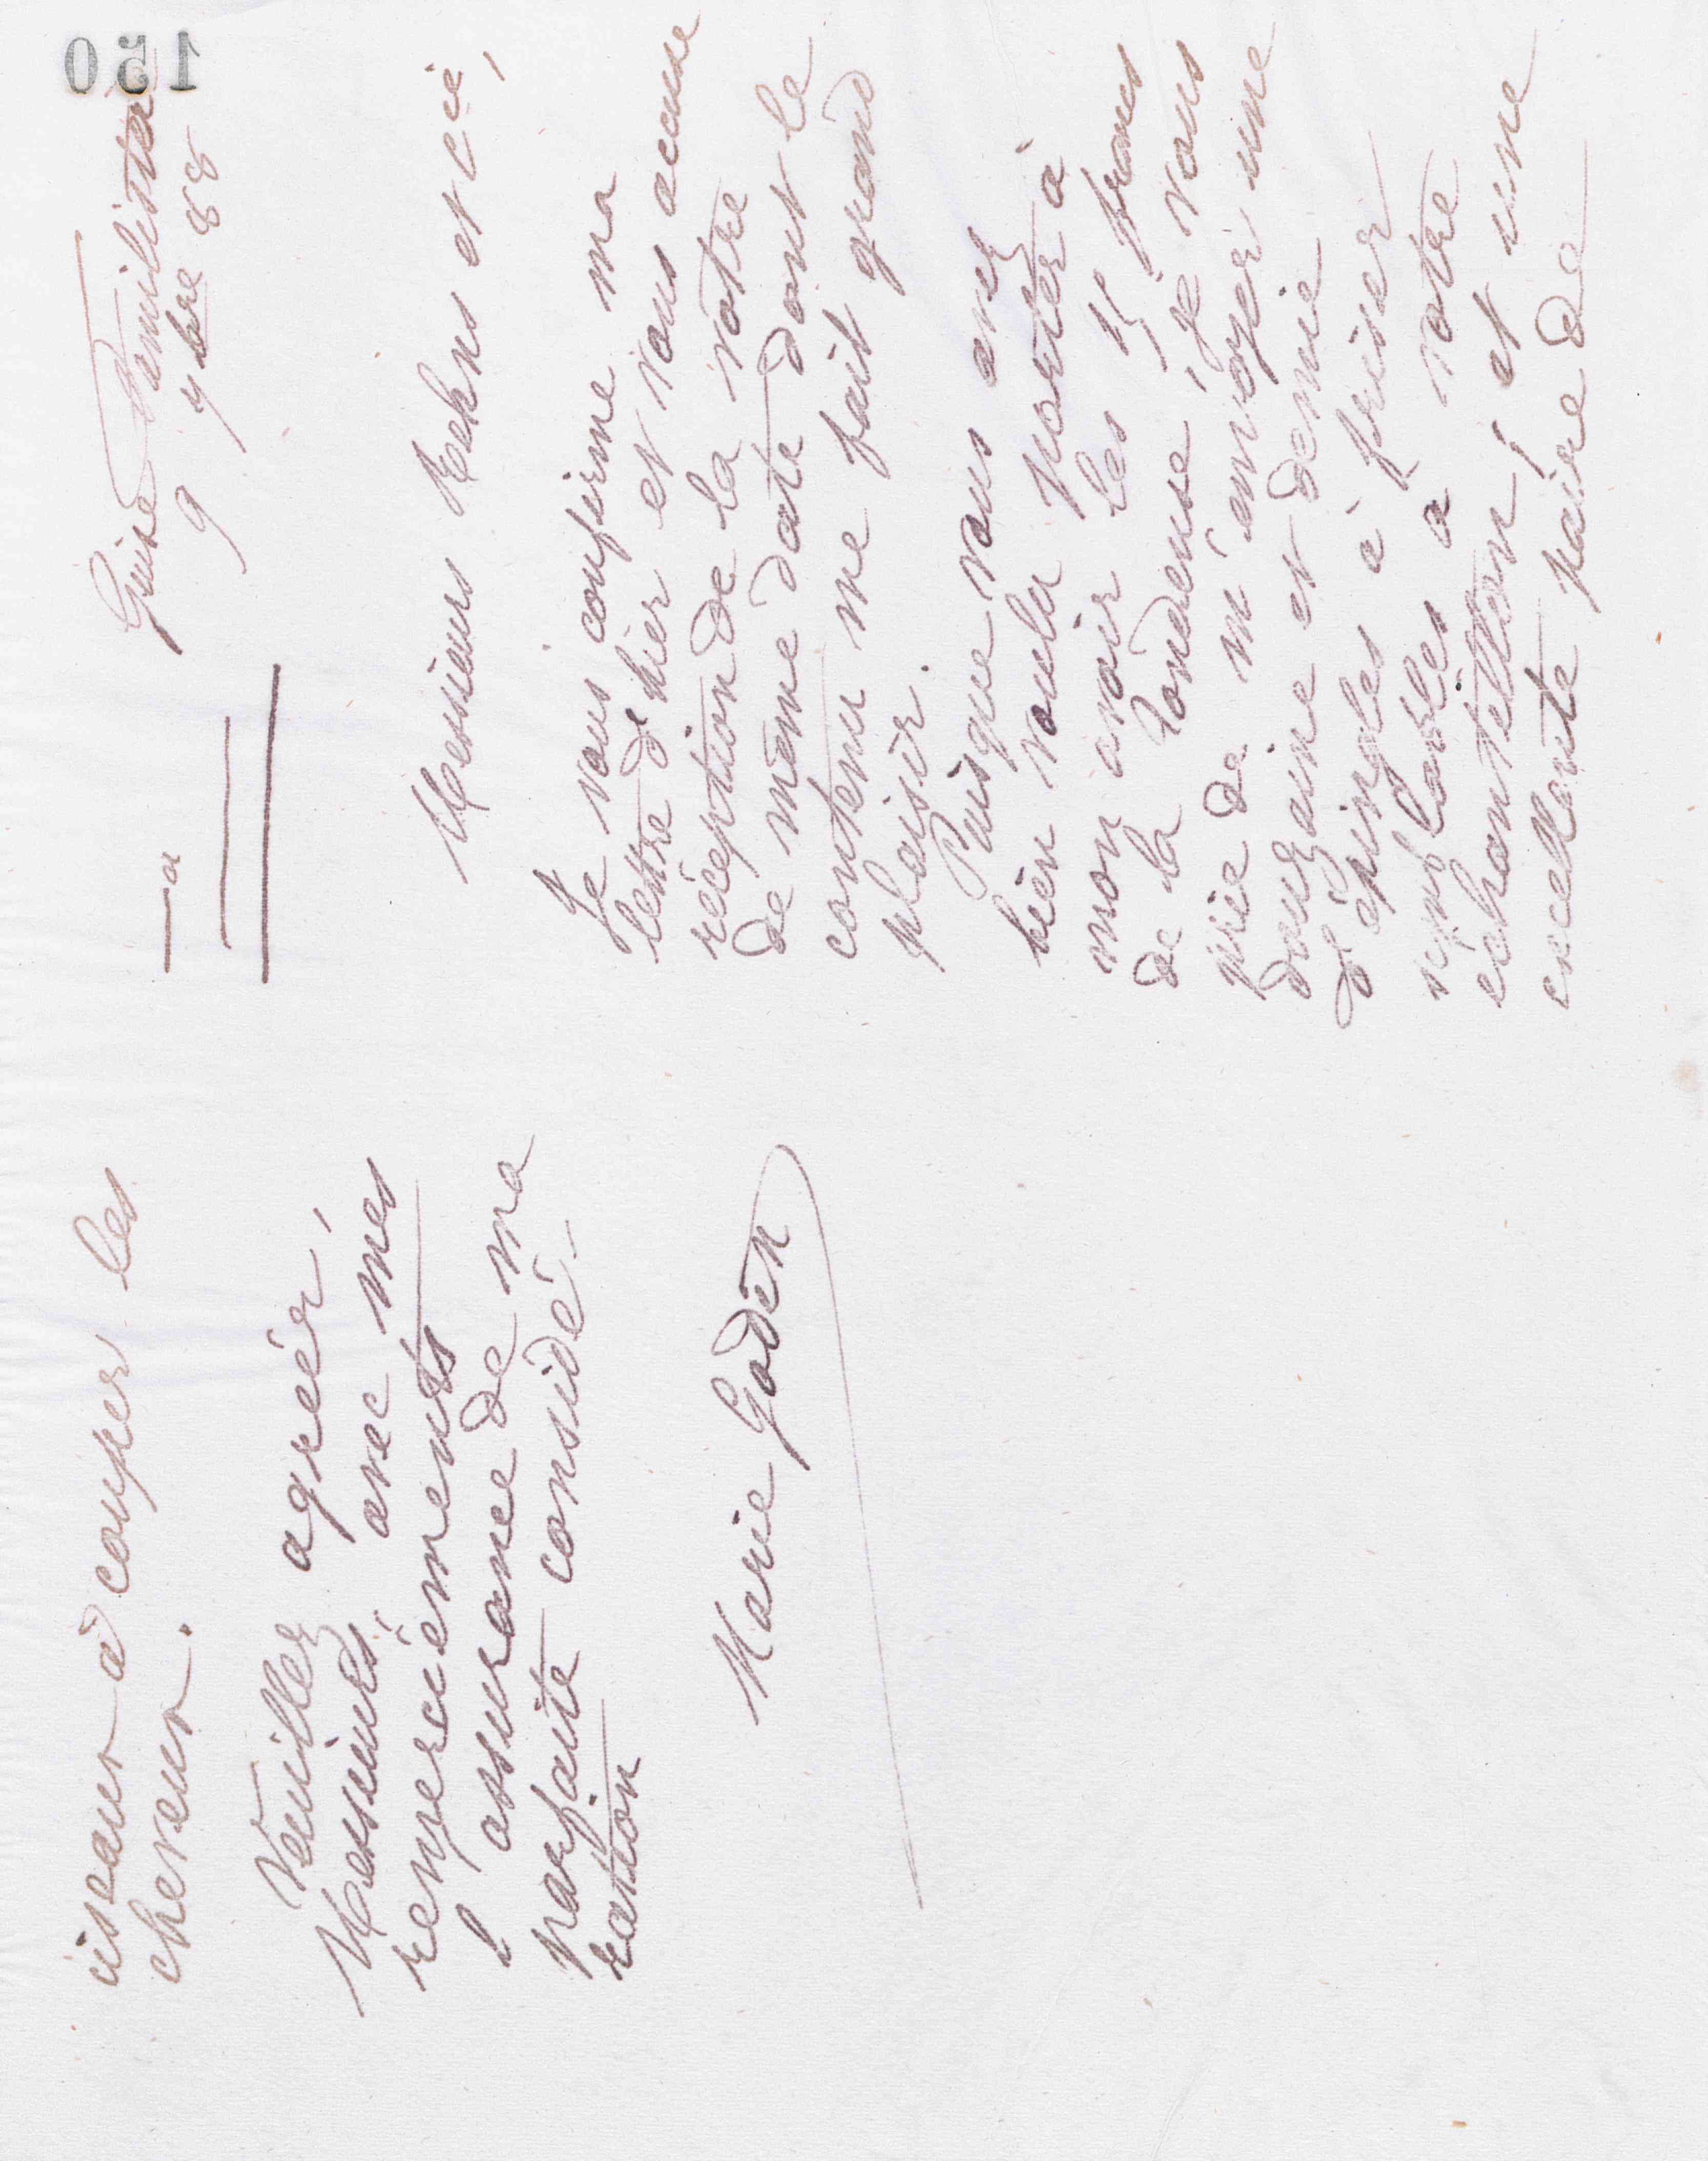 150
Guise Familistère
9 9bre 88
Messieurs Kehns et Cie,
Je vous confirme ma
lettre d'hier et vous accuse
réception de la vôtre
de même date dont le
contenu me fait grand
plaisir.
Puisque vous avez
bien voulu porter à
mon avoir les francs
de la tondeuse, je vous
prie de m'envoyer une
douzaine et demie
d'épingles à friser
semblables à votre
échantillon, et une
excellente paire de
ciseaux à couper les
cheveux.
Veuillez agréer,
Messieurs, avec mes
remerciements
l'assurance de ma
parfaite considé-
ration
Marie Godin